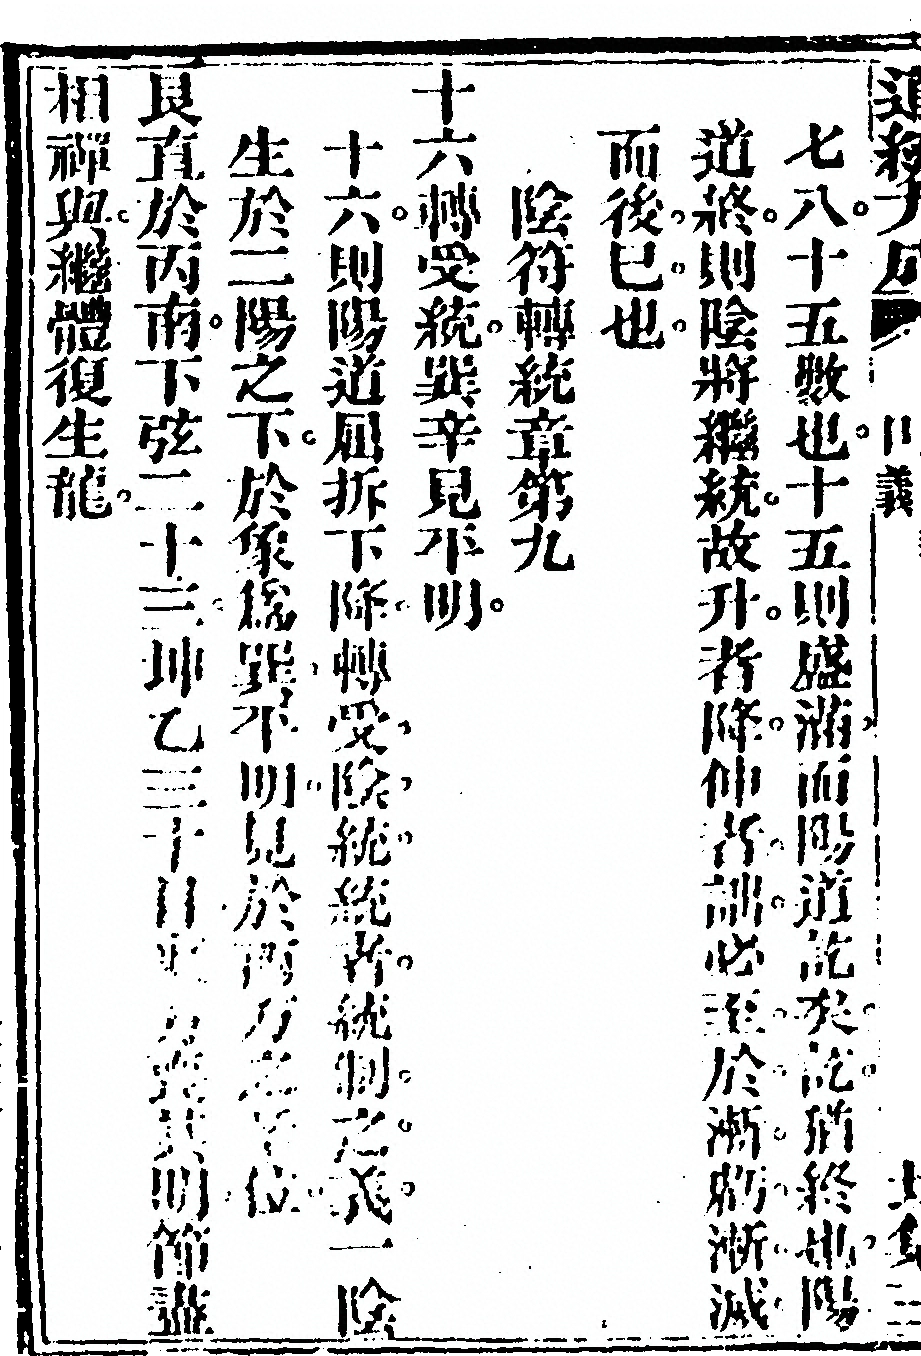 七八十五數也十五則盛滿而陽道訖矣訖猶終也陽
道終則陰將繼統故升者降伸者詘必至於漸虧漸滅
而後已也
陰符轉統章第九
十六轉受統巽辛見平明
十六則陽道屈折下降轉受陰統統者統制之義一陰
生於二陽之下於象為巽平明見於西方之辛位
艮直於丙南下弦二十三坤乙三十日東 喪其明節盡
相禪與繼體復生龍